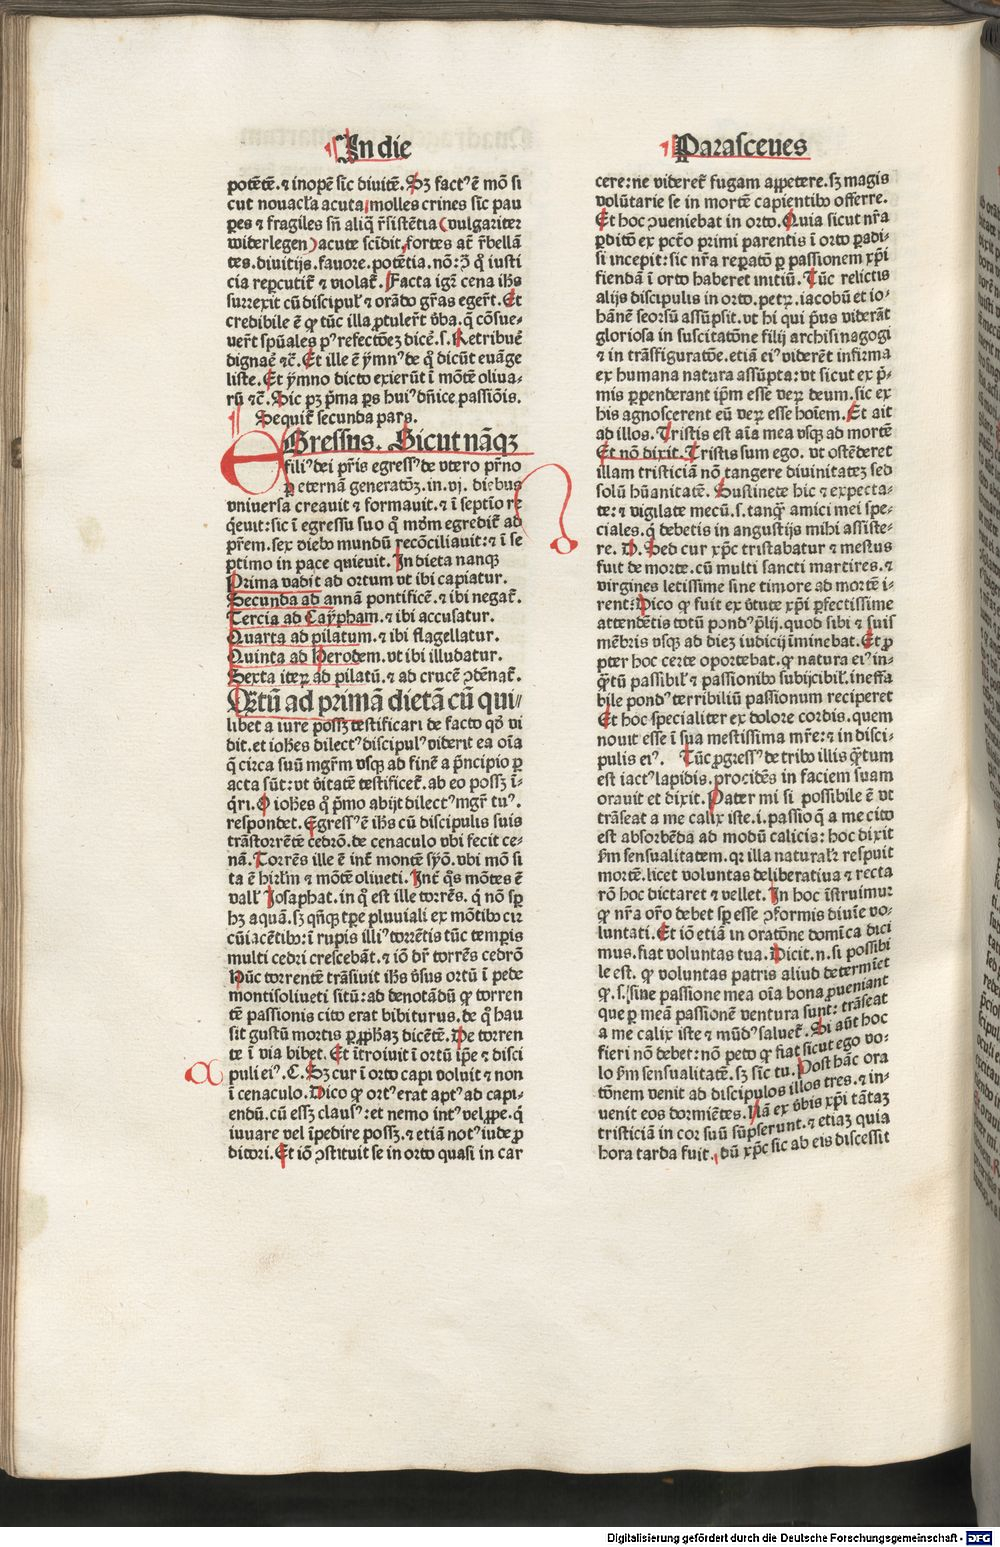 In die
potētē. ⁊ inopē sic divitē. Sꝫ factꝰ ē mō si
cut nouacĺa acuta molles crines sic pau
ꝑes ⁊ fragiles sñ aliq̄ r̄sistētia (vulgariter
widerlegen) acute scīdit, fortes at̄ r̄bellā
tes. divitijs. fauore. potētia. nō: Ɔ q̊ iusti
cia reꝑcutit̄ ⁊ violat̄. Facta igr̄ cena ihs
surrexit cū discipul̄ ⁊ orādo gr̄as eger̄t. Et
credibile ē ꝙ tūc illa ꝓtuler̄t v̄ba. q̄ cōsue-
uer̄t spūales pꝰ refectōeꝫ dicē. s. Retribuē
dignaē ⁊c̄. Et ille ē ymnꝰ de q̊ dicūt euāge
liste. Et ymno dicto exierūt ī mōtē oliua-
rū ⁊c̄. Hic pꝫ p̄ma ꝑs huiꝰ dn̄ice passiōis.
¶ Sequit̄ secunda pars.
EGressus. Sicut nāqꝫ
filiꝰ dei pr̄is egressꝰ de vtero pr̄no
ꝑ eternā generatōꝫ. in. vj. diebus
vniuersa creauit ⁊ formauit. ⁊ ī septīo re
q̄euit: sic ī egressu suo q̊ mōm egredit̄ ad
pr̄em. sex diebꝰ mundū recōciliauit: ⁊ ī se
ptimo in pace quieuit. In dieta nanqꝫ
Prima vadit ad ortum vt ibi capiatur.
Secunda ad annā pontificē. ⁊ ibi negat̄.
Tercia ad Caypham. ⁊ ibi accusatur.
Quarta ad pilatum. ⁊ ibi flagellatur.
Quinta ad Herodem. vt ibi illudatur.
Sexta iteꝝ ad pilatū. ⁊ ad crucē ꝯdēnat̄.
Qꝫtū ad primā dietā cū qui-
libet a iure possꝫ testificari de facto qd̄ vi
dit. et ioh̄es dilectꝰ discipulꝰ viderit ea oīa
q̄ circa suū mgr̄m vsqꝫ ad finē a p̄ncipio ꝑ
acta sūt: vt v̄itatē testificet̄. ab eo possꝫ ī-
q̄ri. O ioh̄es q̊ p̄mo abijt dilectꝰ mgr̄ tuꝰ.
respondet. Egressꝰ ē ihs cū discipulis suis
trāstorrētē cedrō. de cenaculo vbi fecit ce-
nā. Torrēs ille ē int̄ montē syō. vbi mō si
ta ē hirl̄m ⁊ mōtē oliueti. Int̄ q̊s mōtes ē
vall̄ Josaphat. in q̊ est ille torrēs. q̄ nō sꝑ
hꝫ aquā. sꝫ qn̄qꝫ tꝑe pluuiali ex mōtibꝰ cir
cūiacētibꝰ: ī rupis illiꝰ torrētis tūc temꝑis
multi cedri crescebāt. ⁊ iō dr̄ torrēs cedrō
Hūc torrentē trāsiuit ihs v̄sus ortū ī pede
montisoliueti sitū: ad denotādū ꝙ torren
tē passionis cito erat bibiturus. de q̊ hau
sit gustū mortis ꝑ ꝓphaꝫ dicētē. De torren
te ī via bibet. Et ītroiuit ī ortū ip̄e ⁊ disci
puli eiꝰ. C. Sꝫ cur ī orto capi voluit ⁊ non
ī cenaculo. Dico ꝙ ortꝰ erat aptꝰ ad capi-
endū. cū essꝫ clausꝰ: et nemo intꝰ vel ꝓpe. q̄
iuuare vel īpedire possꝫ. ⁊ etiā notꝰ iude ꝓ
ditori. Et iō ꝯstituit se in orto quasi in car
Parasceues
cere: ne videret̄ fugam appetere. sꝫ magis
volūtarie se in mortē capientibꝰ offerre.
Et hoc ꝯueniebat in orto. Quia sicut nr̄a
ꝑditō ex pctō primi parentis ī orto paradi-
si incepit: sic nr̄a reꝑatō ꝑ passionem xp̄i
fiendā ī orto haberet initiū. Tūc relictis
alijs discipulis in orto. petꝝ. iacobū et io-
hānē seorsū assūpsit. vt hi qui p̄us viderāt
gloriosa in suscitatōne filij archisinagogi
⁊ in trāsfiguratōe. etiā eiꝰ viderēt infirma
ex humana natura assūpta: vt sicut ex p̄-
mis ꝑpenderant ip̄m esse veꝝ deum. sic ex
his agnoscerent eū veꝝ esse hoīem. Et ait
ad illos. Tristis est aīa mea vsqꝫ ad mortē
Et nō dixit. Tristis sum ego. vt ostēderet
illam tristiciā nō tangere diuinitateꝫ sed
solū hūanitatē. Sustinete hic ⁊ expecta-
te: ⁊ vigilate mecū. s. tanqꝫ amici mei spe-
ciales. q̄ debetis in angustijs mihi assiste-
re. D. Sed cur xp̄c tristabatur ⁊ mestus
fuit de morte. cū multi sancti martires. ⁊
virgines letissime sine timore ad mortē i-
rent: Dico ꝙ fuit ex v̄tute xp̄i ꝑfectissime
attendētis totū pondꝰ p̄lij. quod sibi ⁊ suis
mēbris vsqꝫ ad dieꝫ iudicij īminebat. Et ꝓ
pter hoc certe oportebat. ꝙ natura eiꝰ in-
q̄tū passibil̄ ⁊ passionibꝰ subijcibil̄. ineffa
bile pondꝰ terribiliū passionum reciperet
Et hoc specialiter ex dolore cordis. quem
nouit esse ī sua mestissima mr̄e: ⁊ in disci-
pulis eiꝰ. Tūc ꝓgressꝰ de tribꝰ illis q̄tum
est iactꝰ lapidis. procidēs in faciem suam
orauit et dixit. Pater mi si possibile ē vt
trāseat a me calix iste. i. passio q̄ a me cito
est absorbēda ad modū calicis: hoc dixit
ẜm sensualitatem. qr illa naturaĺr respuit
mortē. licet voluntas deliberatiua ⁊ recta
rō hoc dictaret ⁊ vellet. In hoc īstruimur
ꝙ nr̄a or̄o debet sꝑ esse ꝯformis diuīe vo-
luntati. Et iō etiā in oratōne domīca dici
mus. fiat voluntas tua. Dicit. n. si possibi
le est. ꝙ voluntas patris aliud determīet
ꝙ. s. sine passione mea oīa bona ꝓueniant
que ꝑ meā passionē ventura sunt: trāseat
a me calix iste ⁊ mūdꝰ saluet̄. Si aūt hoc
fieri nō debet: nō peto ꝙ fiat sicut ego vo-
lo ẜm sensualitatē. sꝫ sic tu. Post hāc ora
tōnem venit ad discipulos illos tres. ⁊ in-
uenit eos dormiētes. Nā ex v̄bis xp̄i tātaꝫ
tristiciā in cor suū sūpserunt. ⁊ etiaꝫ quia
hora tarda fuit. dū xp̄c sic ab eis discessit
Digitalisierung gefördert durch die Deutsche Forschungsgemeinschaft - DFG